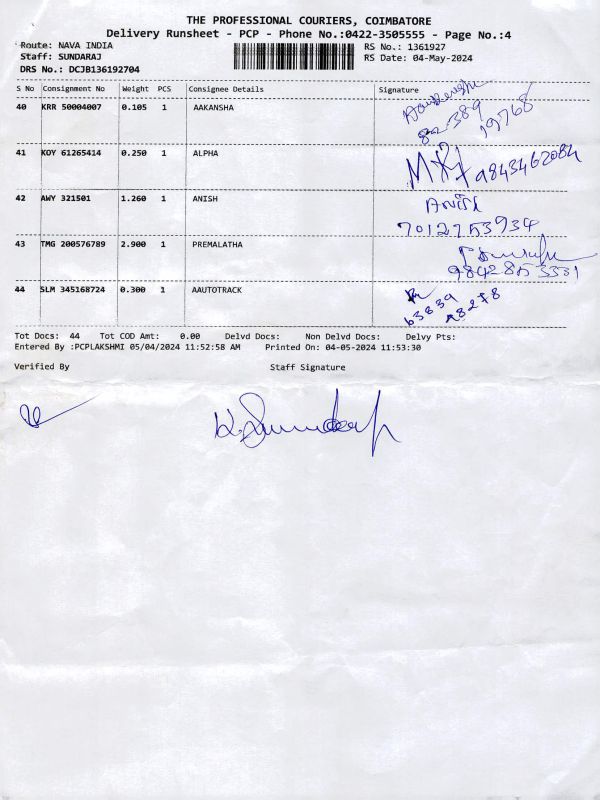 THE PROFESSIONAL COURIERS, COIMBATORE
Delivery Runsheet - PCP - Phone No.:0422-3505555 - Page No.:4
Route: NAVA INDIA RS No.: 1361927
Staff: SUNDARAJ RS Date: 04-May-2024
DRS No.: DCJB136192704
S No Consignment No Weight PCS Consignee Details Signature
40 KRR 50004007 0.105 1 AAKANSHA
82389 19768
41 KOY 61265414 0.250 1 ALPHA
9843462084
42 AWY 321501 1.260 1 ANISH
7012753934
43 TMG 200576789 2.900 1 PREMALATHA
9842853331
44 SLM 345168724 0.300 1 AAUTOTRACK
63839 78278
Tot Docs: 44 Tot COD Amt: 0.00 Delvd Docs: Non Delvd Docs: Delvy Pts:
Entered By :PCPLAKSHMI 05/04/2024 11:52:58 AM Printed On: 04-05-2024 11:53:30
Verified By Staff Signature